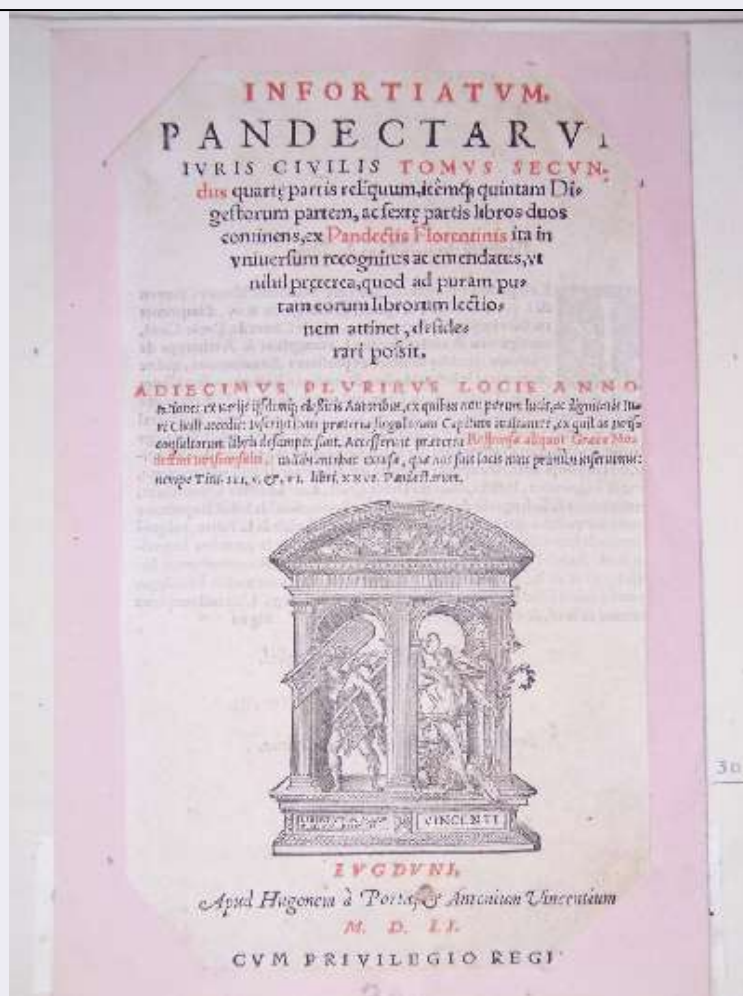 INFORTIATVM,
PANDECTARVM
IVRIS CIVILIS TOMVS SECVN-
dus quartę partis reliquum, itémq; quintam Di-
gestorum partem, ac sextę partis libros duos
continens, ex Pandectis Florentinis ita in
vniuersum recognitus ac emendatus, vt
nihil pręterea, quod ad puram pu-
tam eorum librorum lectio-
nem attinet, deside-
rari possit.
ADIECIMVS PLVRIBVS LOCIS ANNO
tationes ex ijsdemq; Autoribus, ex quibus non parum lucis, ac dignitatis Iu-
ri Ciuili accedit: Inscriptiones præterea singulorum Capitum
consultorum libris desumpta sunt. Accesserunt præterea Responsa aliquot Græca Mo-
destini iurisconsulti, quæ nos suis locis nunc primùm inseruimus:
nempe Titu. III, V, & VI. libri. XXVI. Pandectarum.
VINCENTI
LVGDVNI,
Apud Hugonem à Porta, & Antonium Vincentium
M. D. LI.
CVM PRIVILEGIO REGI
30